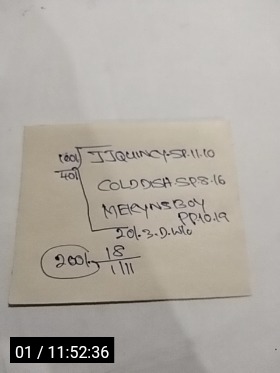 100/. JJQUINCY-SP.11.10
40/.
COLDDISH-SP.8.16
MERVYNSBOY
PP.10.19
20/.3.D.W/o
200/. 18
1/11
01 / 11:52:36